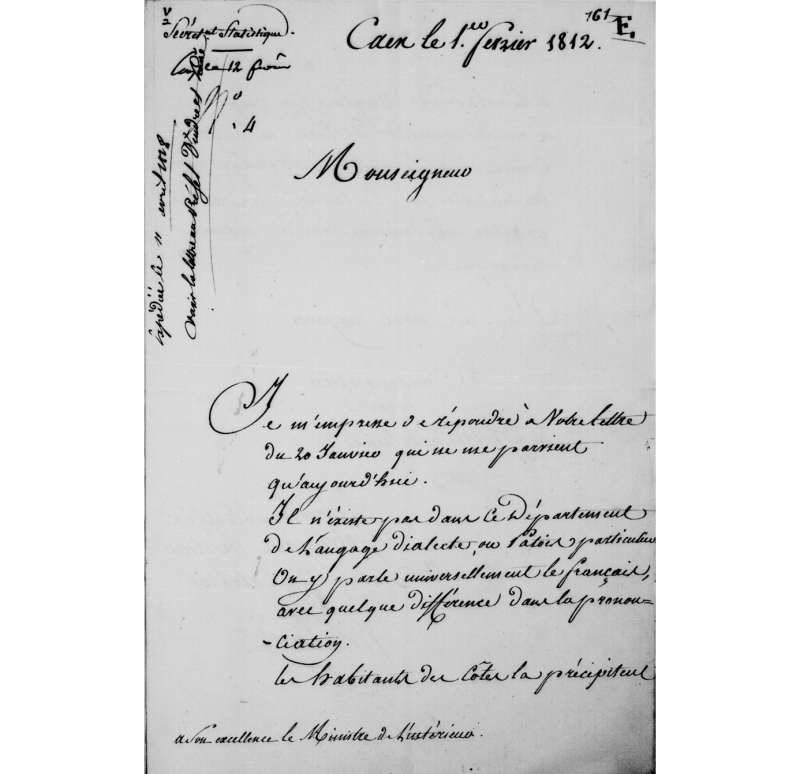 161 E.
Caen le 1.er fevrier 1812.
Secrét.at Statistique.
12
N°
4
Expédiée le 11 avril
Monseigneur
Je m'empresse de répondre à Votre lettre
du 20 Janvier qui ne me parvient
qu'aujourd'hui.
Il n'existe pas dans ce Département
de Langage dialecte, ou Patois particulier
On y parle universellement le français,
avec quelque différence dans la pronon=
-ciation.
les habitants des Côtes la précipitent
a Son excellence le Ministre de l'intérieur.